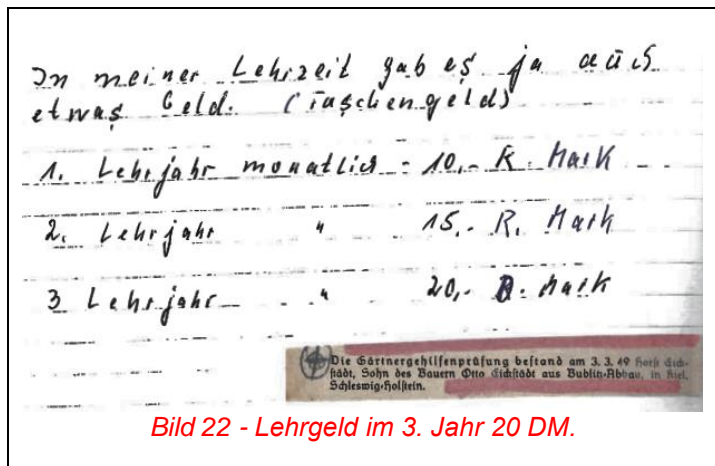 In meiner Lehrzeit gab es ja auch
etwas Geld. (Taschengeld)
1. Lehrjahr monatlich - 10,- R. Mark
2. Lehrjahr " 15,- R. Mark
3 Lehrjahr " 20,- D. Mark
Die Gärtnergehilfenprüfung bestand am 3. 3. 49 Horst Eick-
städt, Sohn des Bauern Otto Eickstädt aus Bublitz-Abbau, in Kiel,
Schleswig-Holstein.
Bild 22 - Lehrgeld im 3. Jahr 20 DM.